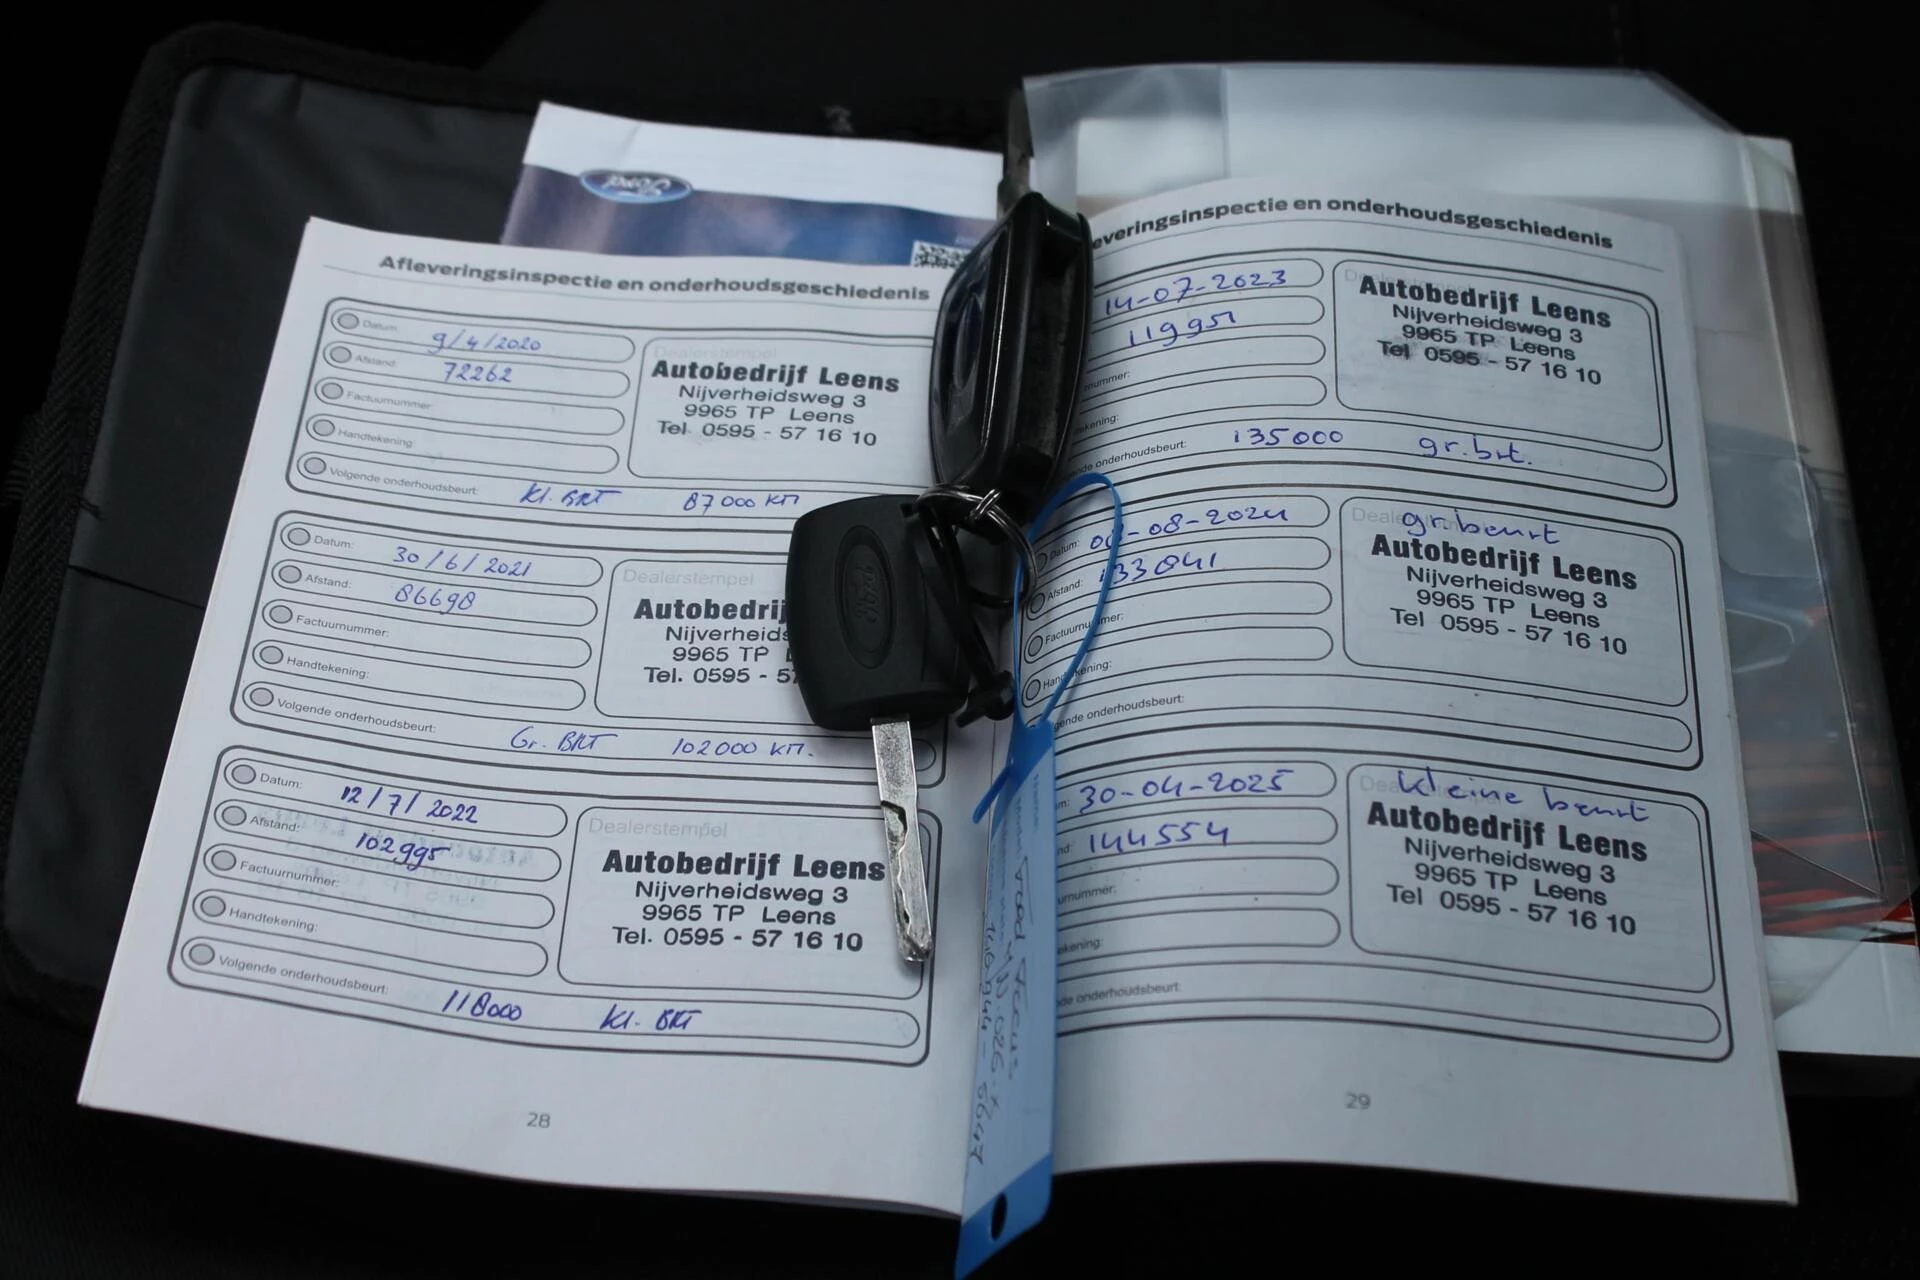 Ford
Afleveringsinspectie en onderhoudsgeschiedenis
Datum: 9/4/2020
Afstand: 72262
Factuurnummer:
Handtekening:
Volgende onderhoudsbeurt: Kl. BRT 87000 KM
Dealerstempel
Autobedrijf Leens
Nijverheidsweg 3
9965 TP Leens
Tel 0595 - 57 16 10
Datum: 30/6/2021
Afstand: 86698
Factuurnummer:
Handtekening:
Volgende onderhoudsbeurt: Gr. BRT 102000 KM.
Dealerstempel
Autobedrij
Nijverheids
9965 TP
Tel. 0595 - 57
Datum: 12/7/2022
Afstand: 102995
Factuurnummer:
Handtekening:
Volgende onderhoudsbeurt: 118000 Kl. BRT
Dealerstempel
Autobedrijf Leens
Nijverheidsweg 3
9965 TP Leens
Tel. 0595 - 57 16 10
28
Ford
leveringsinspectie en onderhoudsgeschiedenis
14-07-2023
119951
nummer:
ekening:
gende onderhoudsbeurt: 135000 gr.brt.
Autobedrijf Leens
Nijverheidsweg 3
9965 TP Leens
Tel 0595 - 57 16 10
Datum: -08-2024
Afstand: 133041
Factuurnummer:
Handtekening:
gende onderhoudsbeurt:
gr.beurt
Autobedrijf Leens
Nijverheidsweg 3
9965 TP Leens
Tel 0595 - 57 16 10
um: 30-04-2025
nd: 144554
urnummer:
ekening:
de onderhoudsbeurt:
kleine beurt
Autobedrijf Leens
Nijverheidsweg 3
9965 TP Leens
Tel 0595 - 57 16 10
29